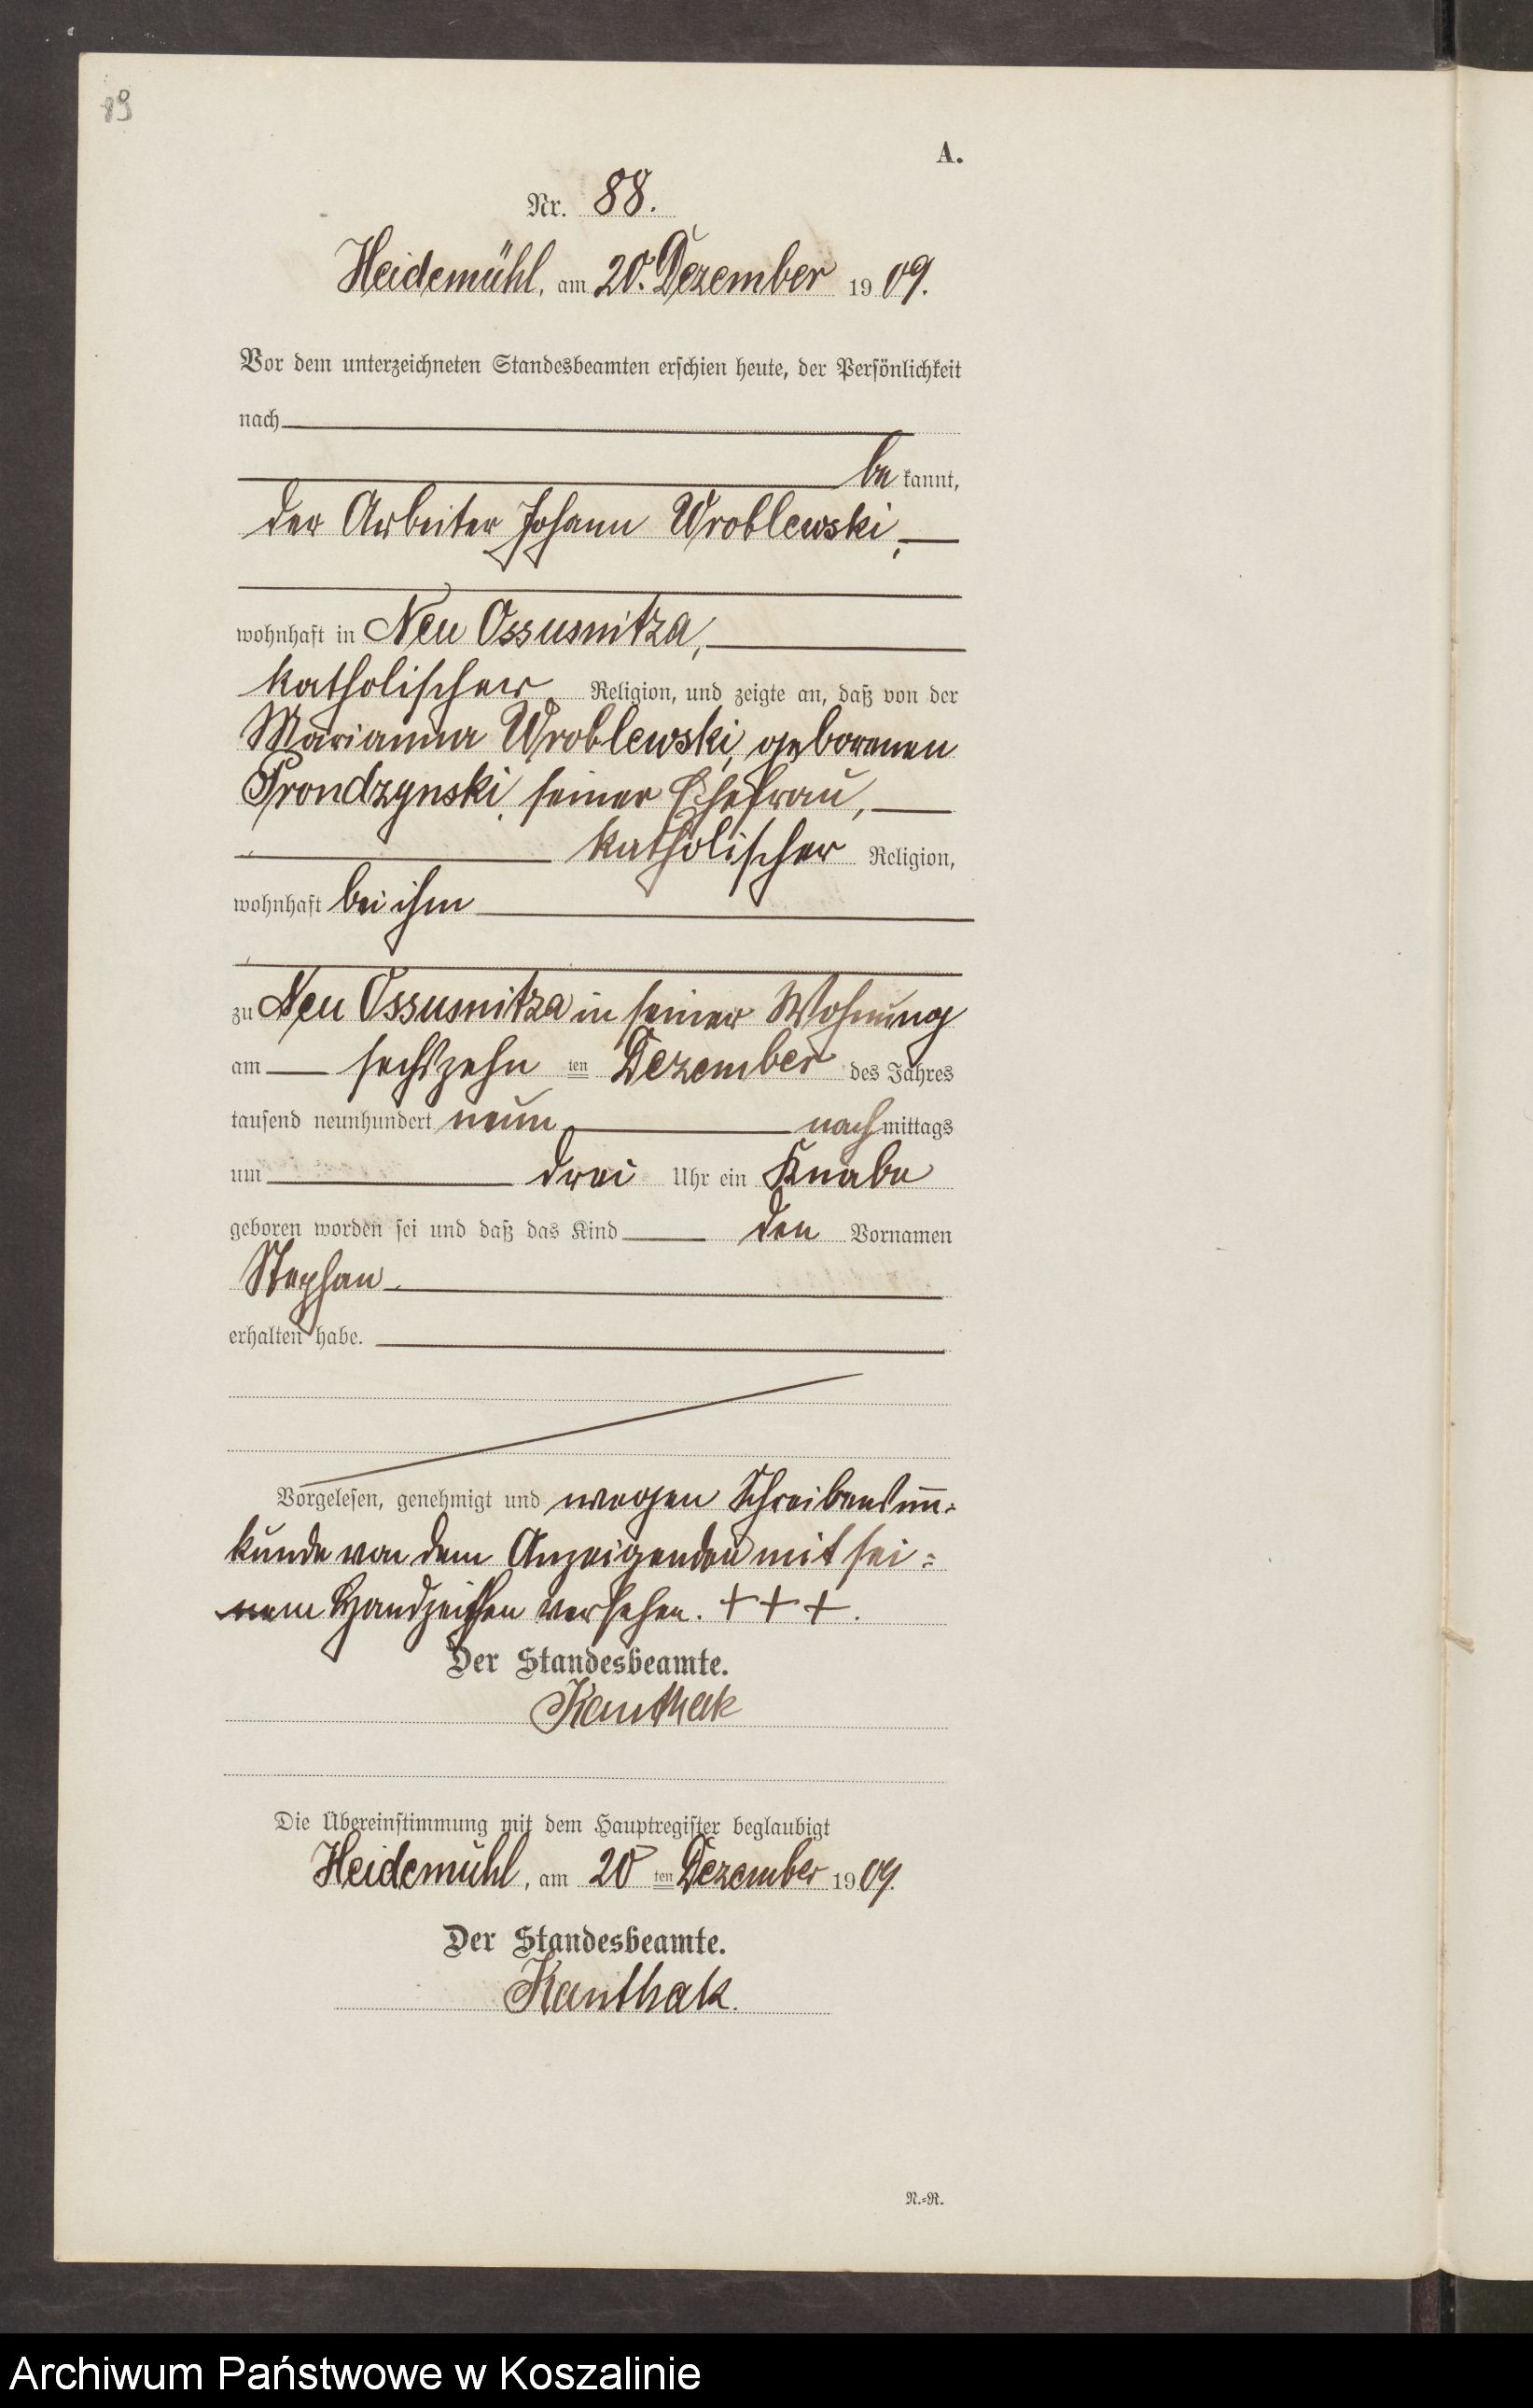 89
A.
Nr. 88.
Heidemühl, am 20. Dezember 1909.
Vor dem unterzeichneten Standesbeamten erschien heute, der Persönlichkeit
nach
be kannt,
der Arbeiter Johann Wroblewski,
wohnhaft in Neu Ossusnitza,
katholischer Religion, und zeigte an, daß von der
Marianna Wroblewski, geborenen
Prondzynski, seiner Ehefrau,
katholischer Religion,
wohnhaft bei ihm
zu Neu Ossusnitza in seiner Wohnung
am sechszehn ten Dezember des Jahres
tausend neunhundert neun nachmittags
um drei Uhr ein Knabe
geboren worden sei und daß das Kind den Vornamen
Stephan
erhalten habe.
Vorgelesen, genehmigt und wegen Schreibensun=
kunde von dem Anzeigenden mit sei=
nem Handzeichen versehen. +++.
Der Standesbeamte.
Kanthak
Die Übereinstimmung mit dem Hauptregister beglaubigt
Heidemühl, am 20 ten Dezember 1909.
Der Standesbeamte.
Kanthak.
N.=R.
Archiwum Państwowe w Koszalinie